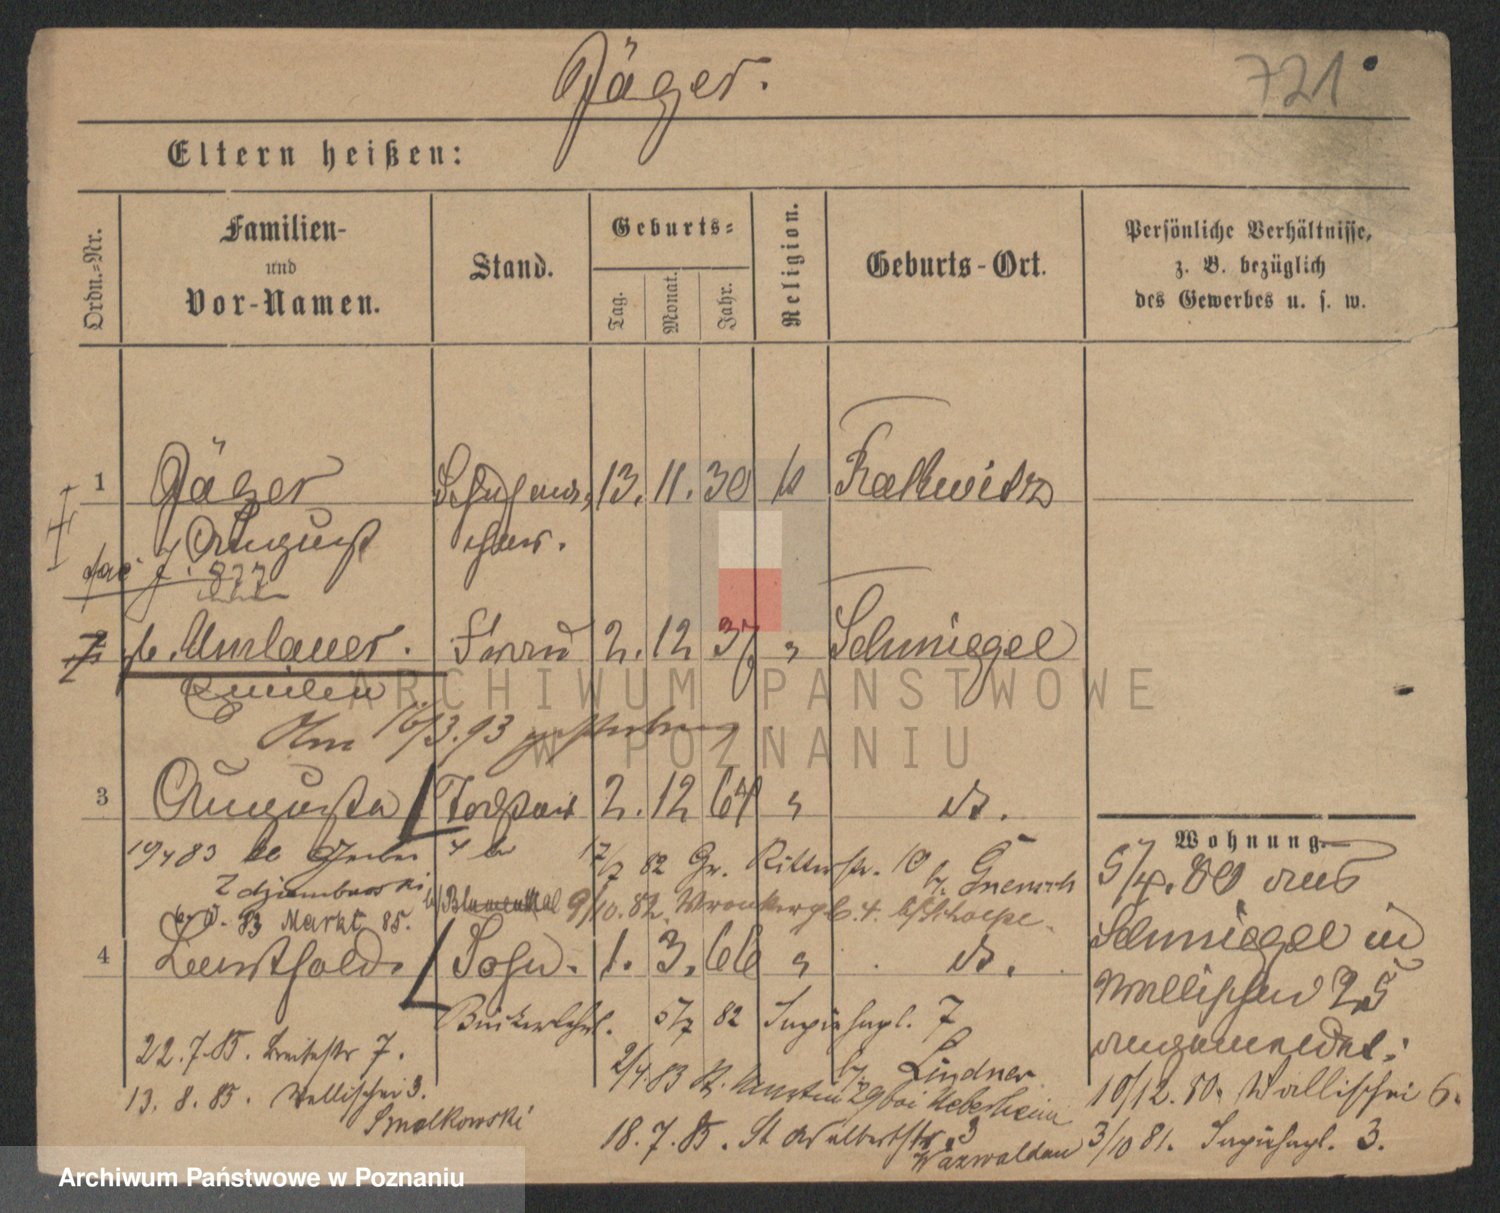 Jäger.
721
Eltern heißen:
Ordn.-Nr.
Familien-
und
Vor-Namen.
Stand.
Geburts-
Tag.
Monat.
Jahr.
Religion.
Geburts-Ort.
Persönliche Verhältnisse,
z. B. bezüglich
des Gewerbes u. s. w.
1 Jäger 13. 11. 30 Ralkwitz
August
Schuhmacher.
g. Umlauer. Frau 2. 12 37 " Schmiegel
Emilie
Am 16/3.93 gestorben
3 Augusta Tochter 2. 12 64 " do.
Wohnung.
19/4 83
Zdjembowski
83 Markt 85.
b/Blumenthal
12/7 82 Gr. Ritterstr. 10
9/10. 82. Wronkerpl. 4.
4 Leusthold. Sohn. 1. 3. 66 " do.
5/4. 80 aus
Schmiegel in
Wallischei 25
angemeldet.
10/12. 80. Wallischei 6.
3/10 81. Sapiehapl. 3.
Bäckerlehrl. 5/7 82 Sapiehapl. 7
22.7.85. Breitestr 7.
13. 8. 85. Wallischei 3.
Smolkowski
2/4.83 St. Martin 29 bei
Lindner
18.7.85. St. Adalbertstr. 3
Warwaldau
ARCHIWUM PAŃSTWOWE
W POZNANIU
Archiwum Państwowe w Poznaniu